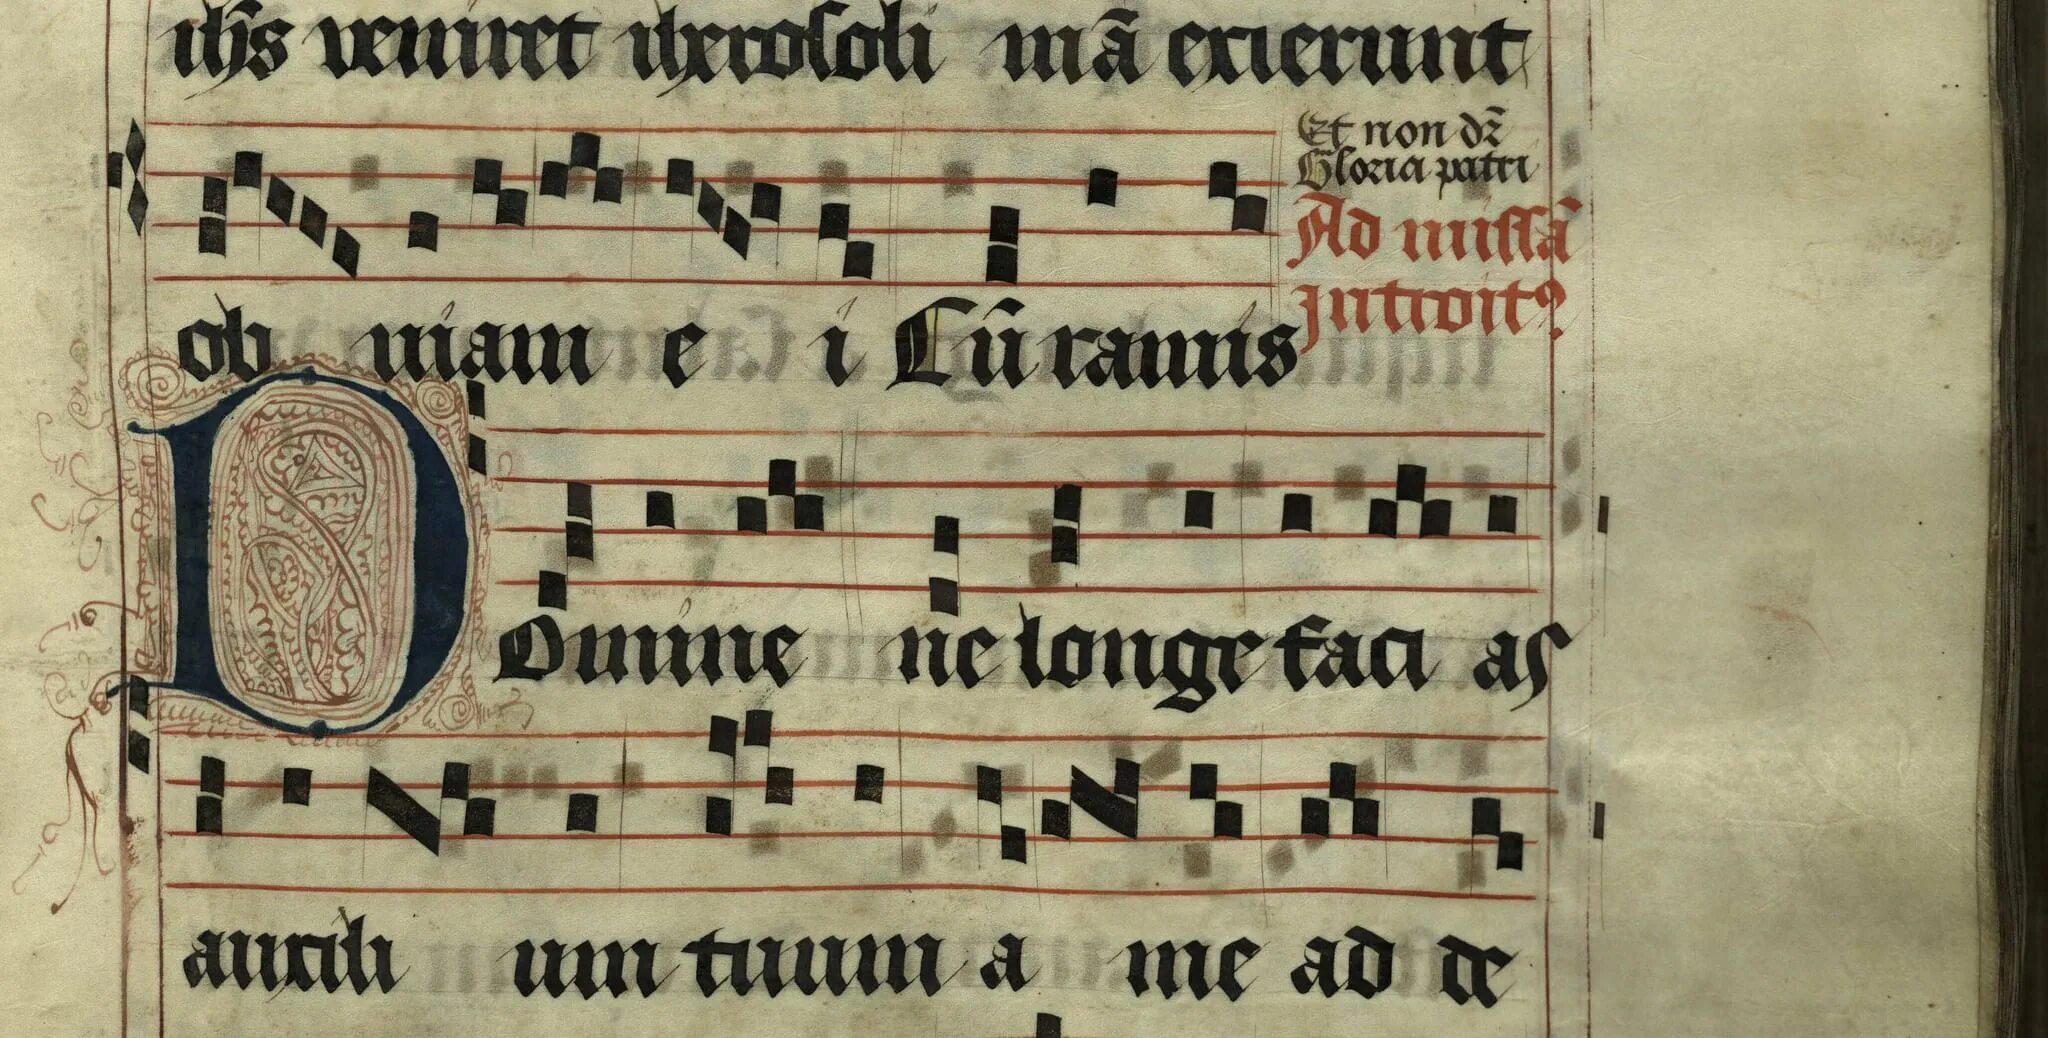 ih̄s veniret iherosoli mā exierunt
Et non dr̄
Gloria patri
Ad missā
Introit⁹
ob uiam e i Cū ramis
Domine ne longe faci as
auxili um tuum a me ad de